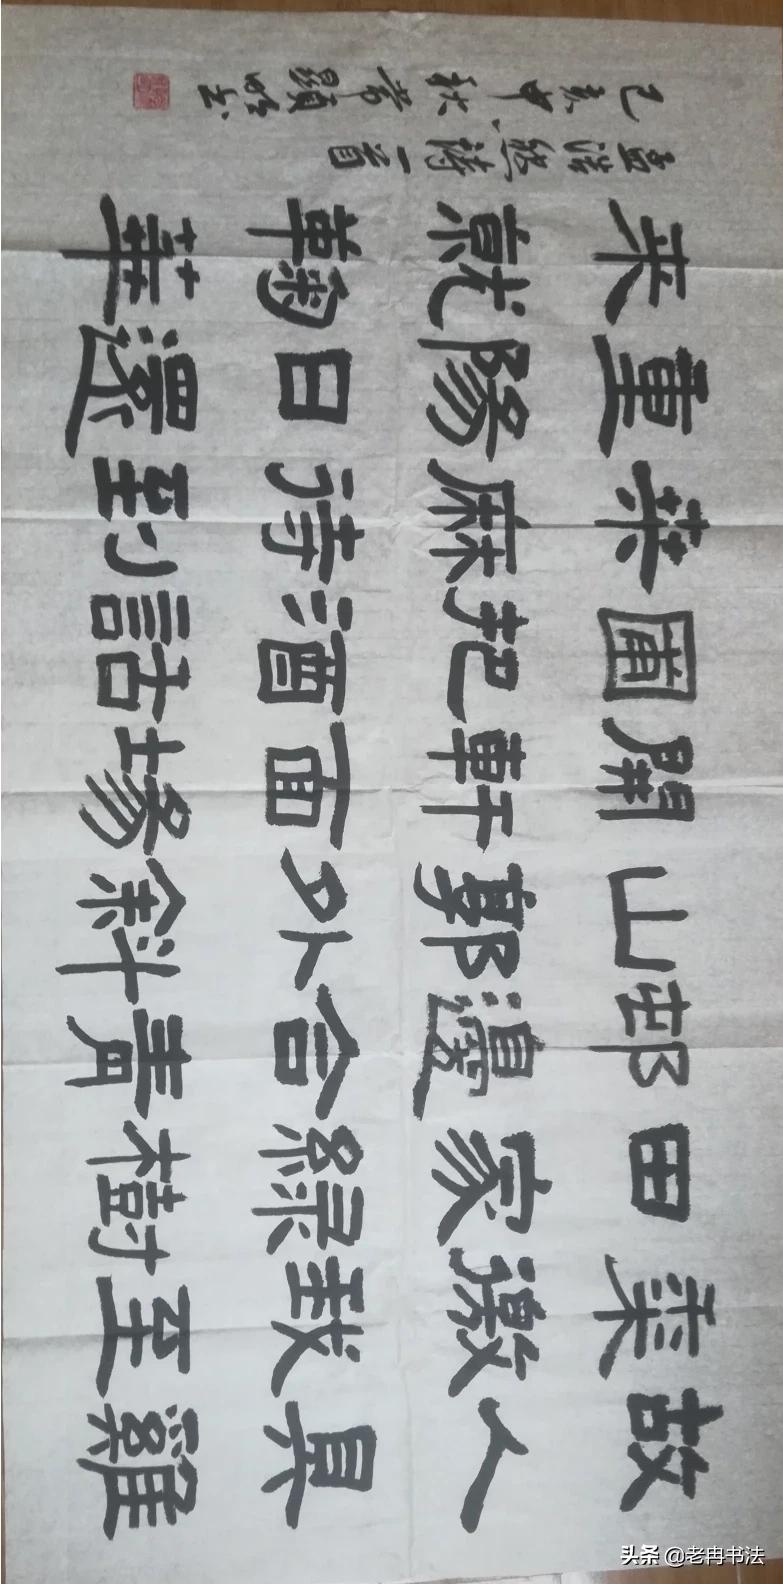 故人具雞
黍邀我至
田家綠樹
邨邊合青
山郭外斜
開軒面場
圃把酒話
桒麻待到
重陽日還
来就鞠華
孟浩然詩一首
己亥中秋
头条 @老冉书法